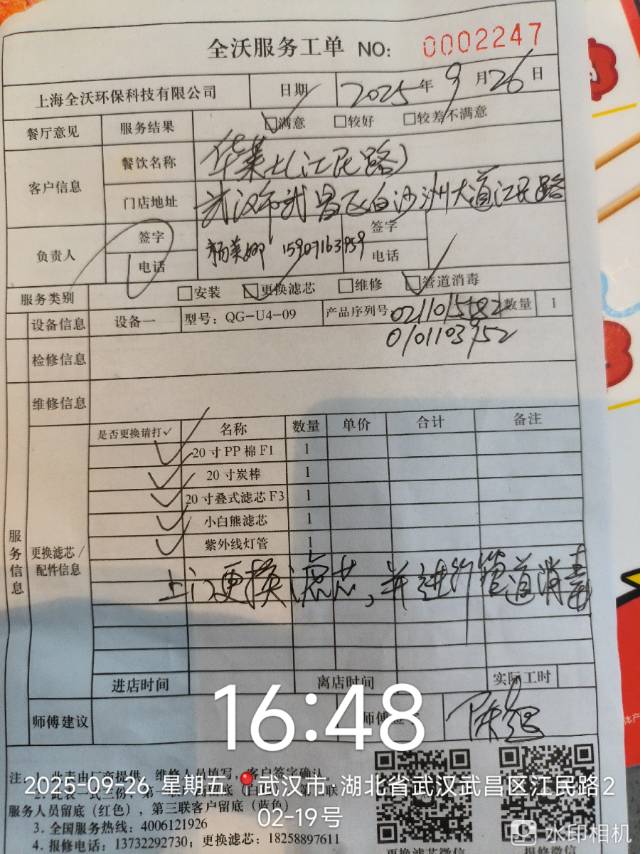 全沃服务工单 NO: 0002247
上海全沃环保科技有限公司 日期 2025年9月26日
餐厅意见 服务结果 满意 较好 较差不满意
客户信息 餐饮名称 华莱士(江民路)
门店地址 武汉市武昌区白沙洲大道江民路
负责人 签字 签字
电话 15907163959 电话
服务类别 安装 更换滤芯 维修 管道消毒
设备信息 设备一 型号: QG-U4-09 产品序列号 数量 1
0101103952
检修信息
维修信息
是否更换请打✓ 名称 数量 单价 合计 备注
✓ 20寸PP棉F1 1
✓ 20寸炭棒 1
✓ 20寸叠式滤芯F3 1
✓ 小白熊滤芯 1
✓ 紫外线灯管 1
服务信息 更换滤芯/配件信息
上门更换滤芯,并进行管道消毒
进店时间 离店时间 实际工时
16:48
师傅建议
2025-09-26 星期五 武汉市·湖北省武汉武昌区江民路202-19号
服务人员留底(红色),第三联客户留底(蓝色)
3. 全国服务热线: 4006121926
4. 报修电话: 13732292730; 更换滤芯: 18258897611
水印相机